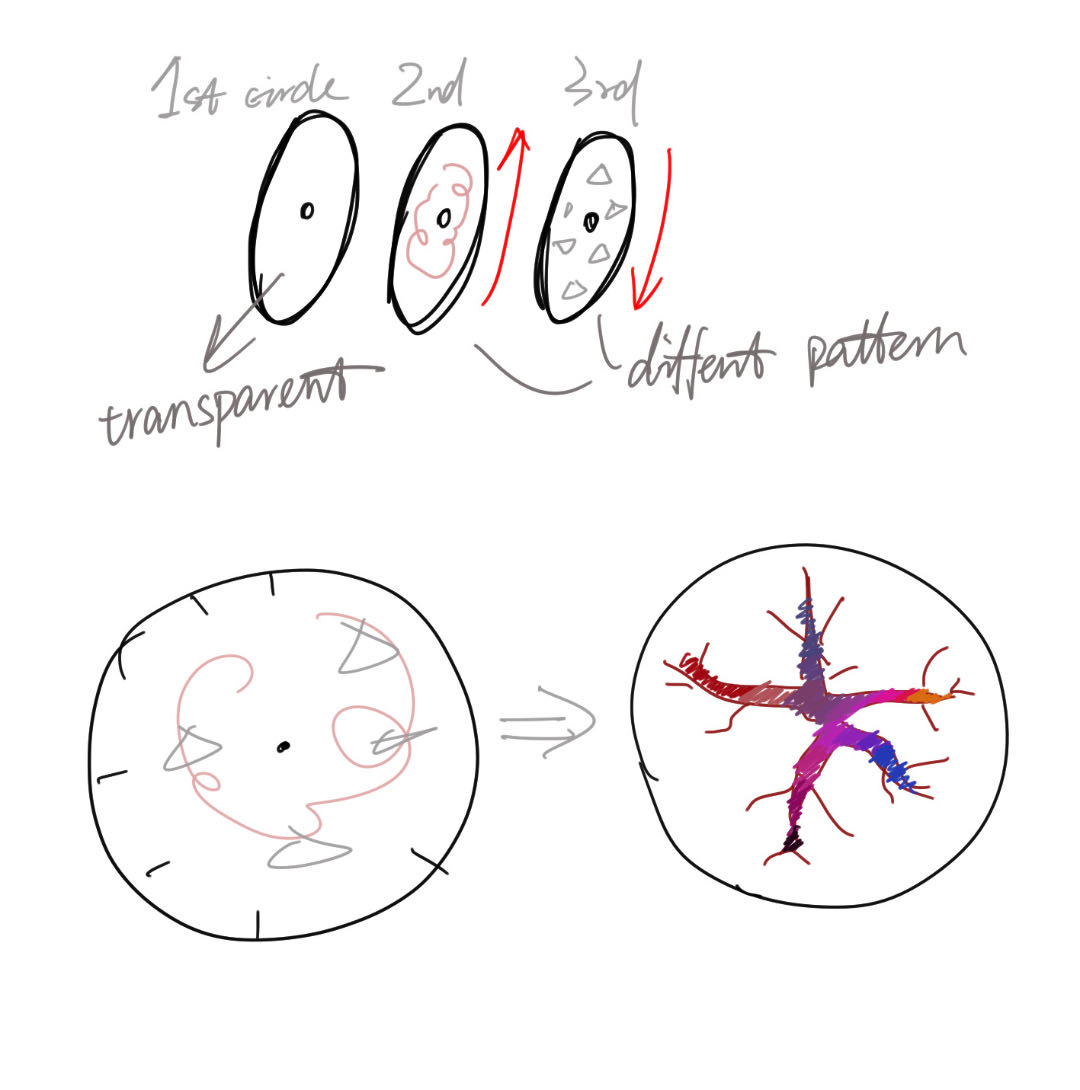 1st circle 2nd 3rd
transparent
diffent pattern